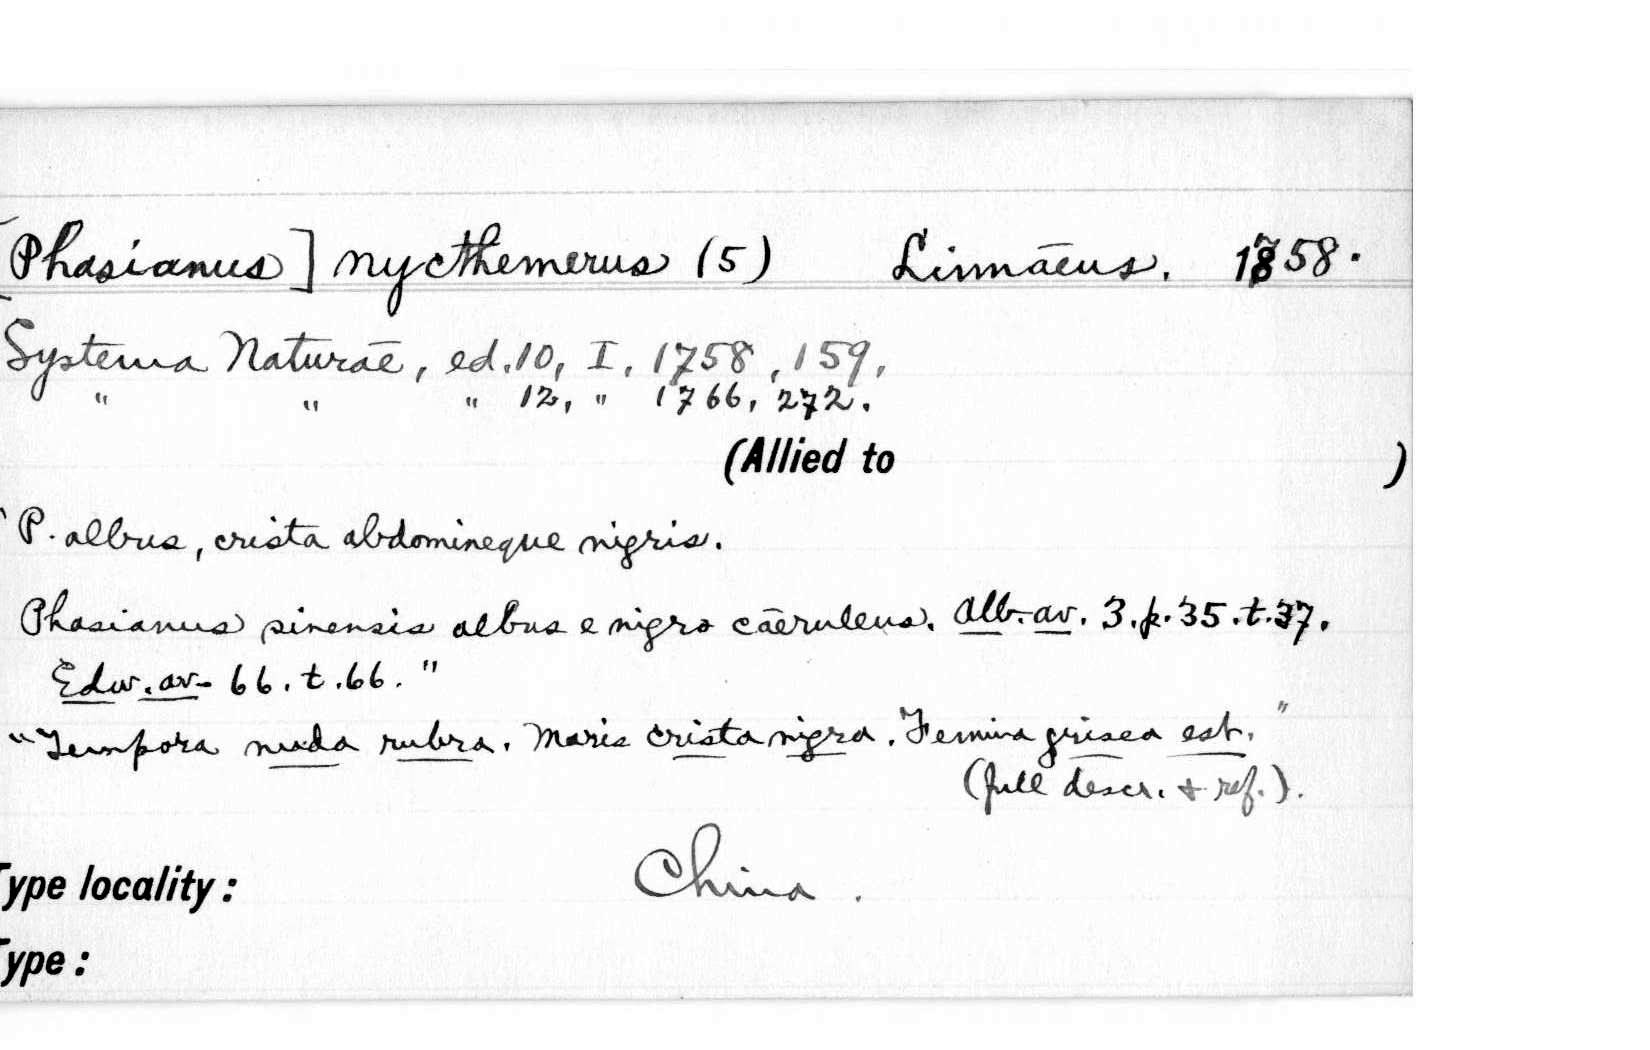 [Phasianus] nycthemerus (5) Linnāeus. 1758.
Systema Naturāe, ed. 10, I, 1758, 159,
" " " 12, " 1766, 272.
(Allied to )
"P. albus, crista abdomineque nigris.
Phasianus sinensis albus e nigro cāeruleus. Alb. av. 3. p. 35. t. 37.
Edw. av. 66. t. 66."
"Tempora nuda rubra. Maris crista nigra. Femina grisea est."
(full descr. & ref.).
Type locality: China.
Type: